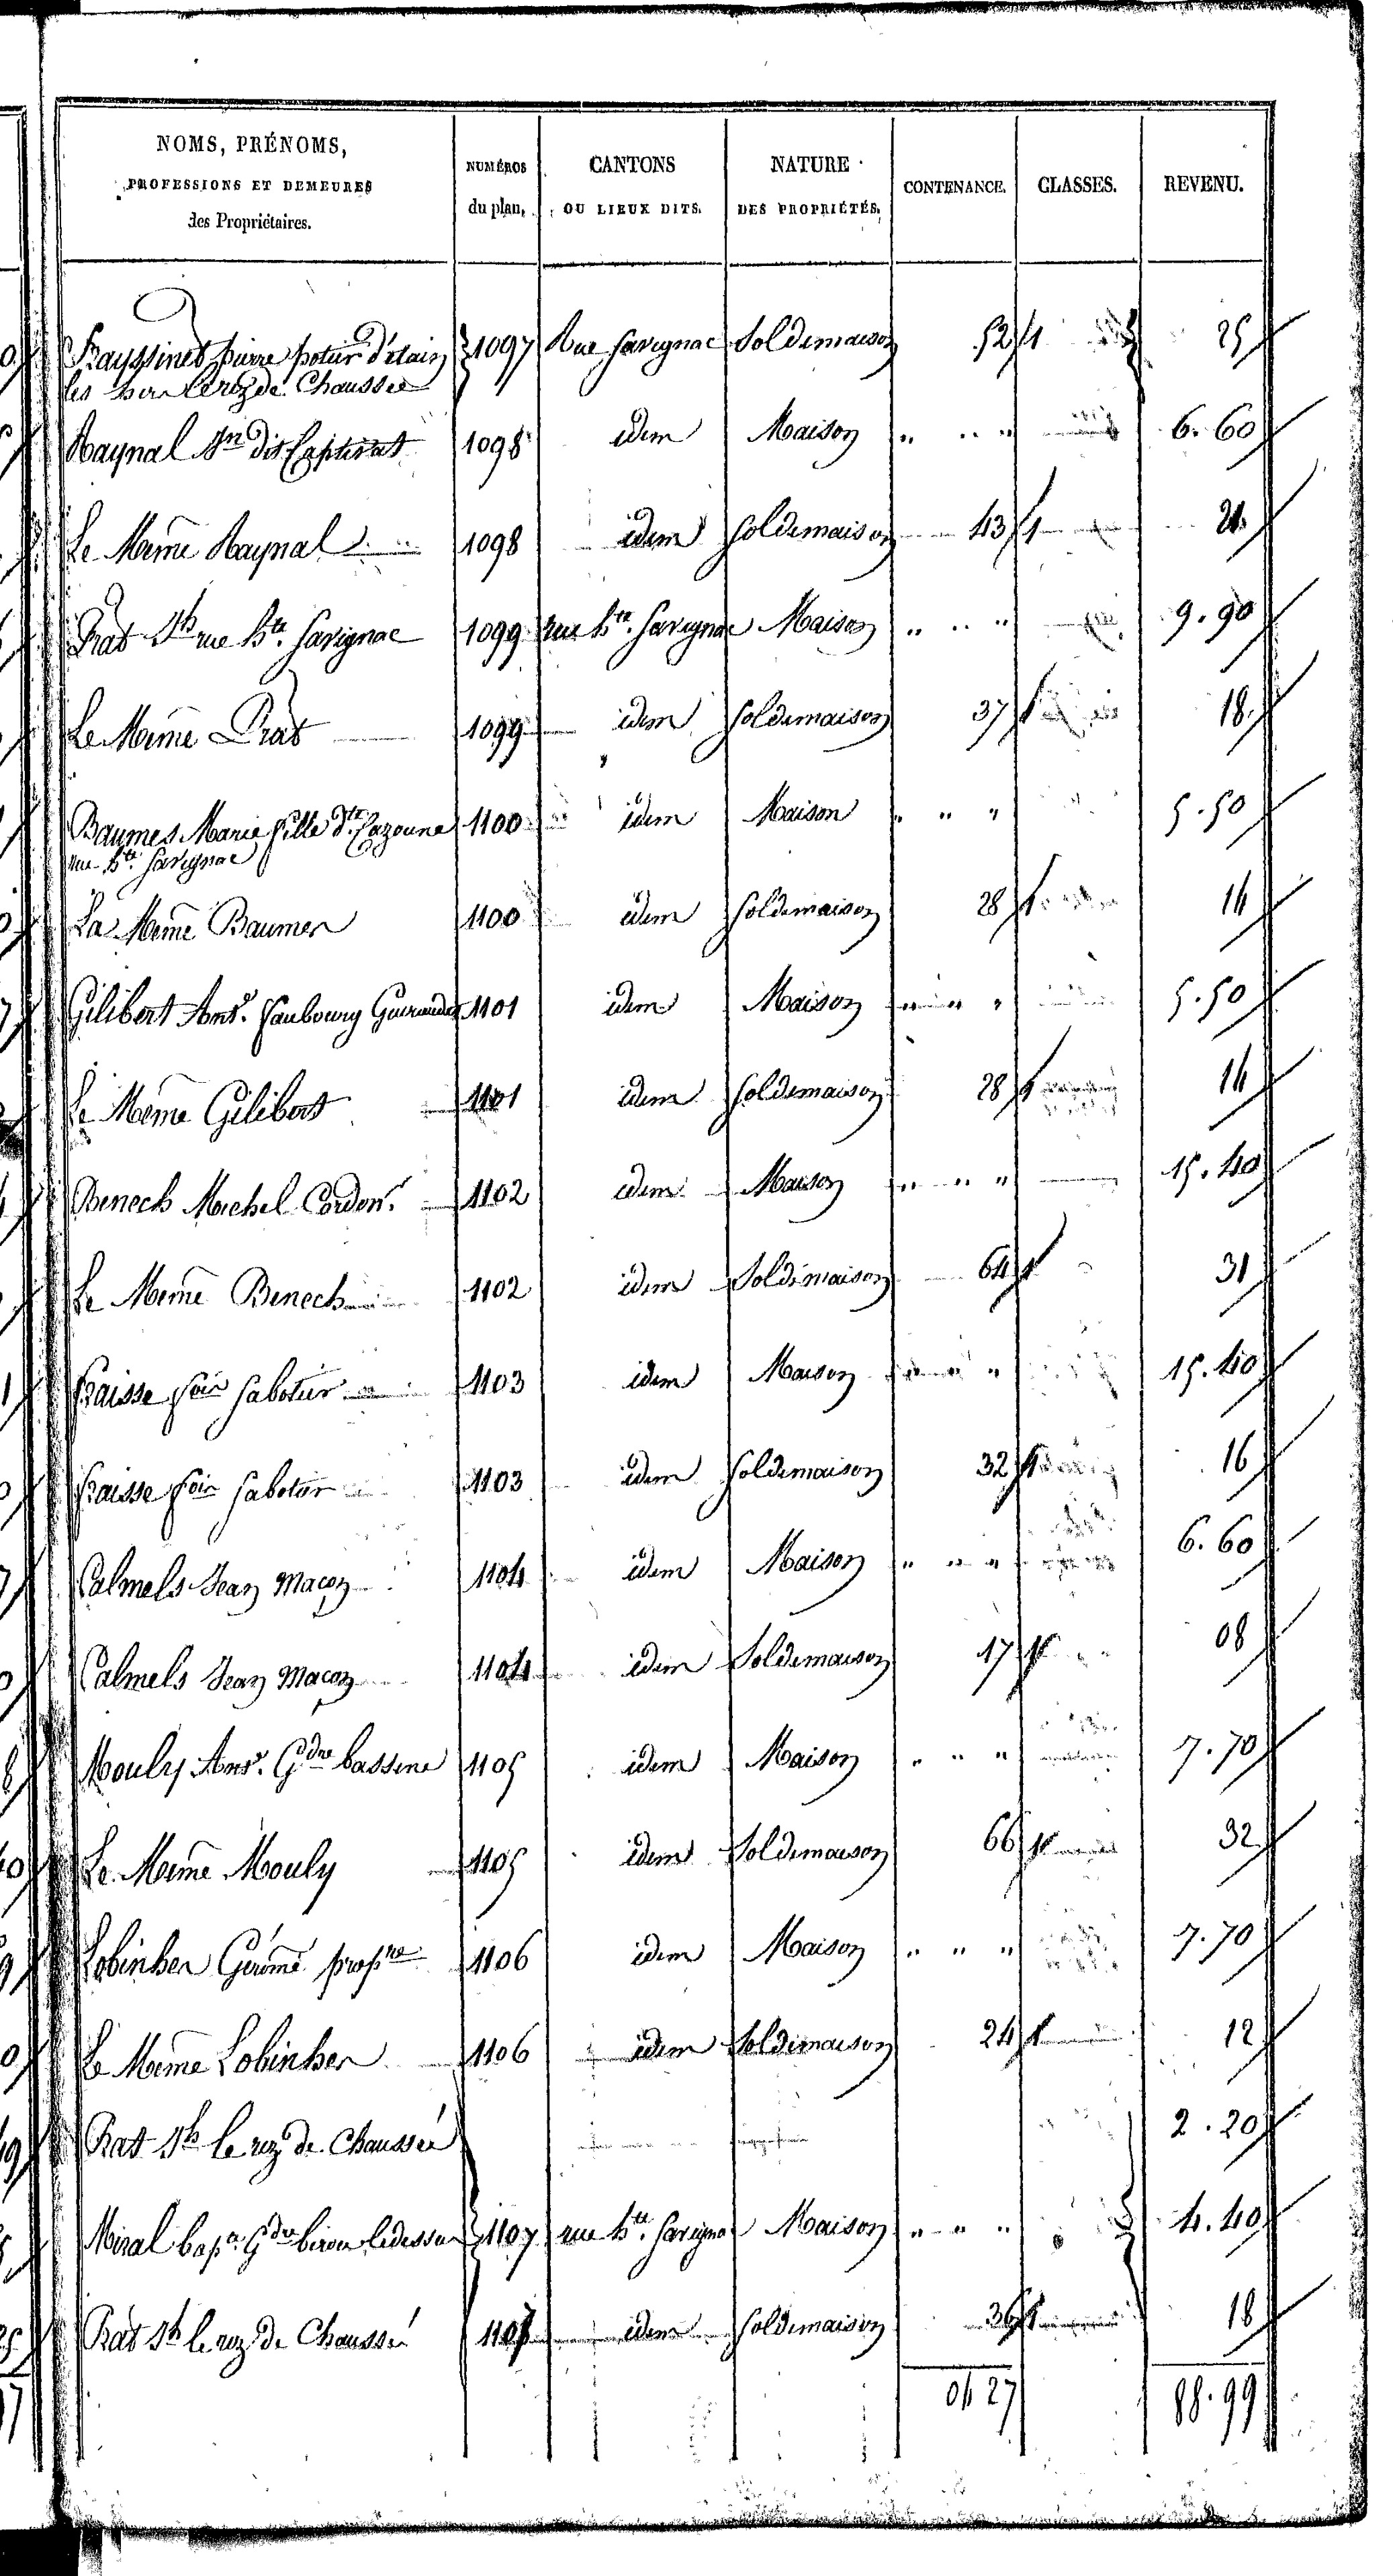 NOMS, PRÉNOMS, PROFESSIONS ET DEMEURES des Propriétaires. NUMÉROS du plan. CANTONS OU LIEUX DITS. NATURE DES PROPRIÉTÉS. CONTENANCE. CLASSES. REVENU.
Frayssinet pierre potier d'étain 1097 Rue Savignac Sol de maison 52 1 25
les rez de Chaussée
Raynal dit 1098 idem Maison " " " 6.60
Le Meme Raynal 1098 idem Sol de maison 43 1 21
Prat Jh rue hte. Savignac 1099 rue hte. Savignac Maison " " " 9.90
Le Meme Prat 1099 idem Sol de maison 37 1 18
Baumes Marie fille dte Cazoune 1100 idem Maison " " " 5.50
rue hte. Savignac
La Meme Baumes 1100 idem Sol de maison 28 1 14
Gilibert Ant. faubourg 1101 idem Maison " " " 5.50
Le Meme Gilibert 1101 idem Sol de maison 28 1 14
Benech Michel Cordonr. 1102 idem Maison " " " 15.40
Le Meme Benech 1102 idem Sol de maison 64 1 31
Fraisse sabotier 1103 idem Maison " " " 15.40
Fraisse sabotier 1103 idem Sol de maison 32 1 16
Calmels Jean Macon 1104 idem Maison " " " 6.60
Calmels Jean Macon 1104 idem Sol de maison 17 1 08
Mouly Ant. Gdre bassine 1105 idem Maison " " " 7.70
Le Meme Mouly 1105 idem Sol de maison 66 1 32
Lobinhes propre 1106 idem Maison " " " 7.70
Le Meme Lobinhes 1106 idem Sol de maison 24 1 12
Prat Jh le rez de Chaussée 2.20
Miral bapte. Gdre biron le dessus 1107 rue hte. Savignac Maison " " " 4.40
Prat Jh le rez de Chaussé 1107 idem Sol de maison 36 1 18
04 27 88.99